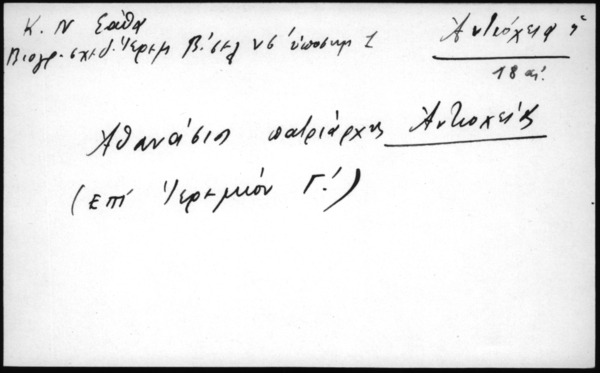 Κ. Ν Σάθα
Βιογρ. σχεδ. Ἱερεμ Β΄. σελ νς΄ ὑποσημ 1
Ἀντιόχεια ἡ
18 αἰ.
Ἀθανάσιος πατριάρχης Ἀντιοχείας
(ἐπί Ἱερεμίου Γ΄.)